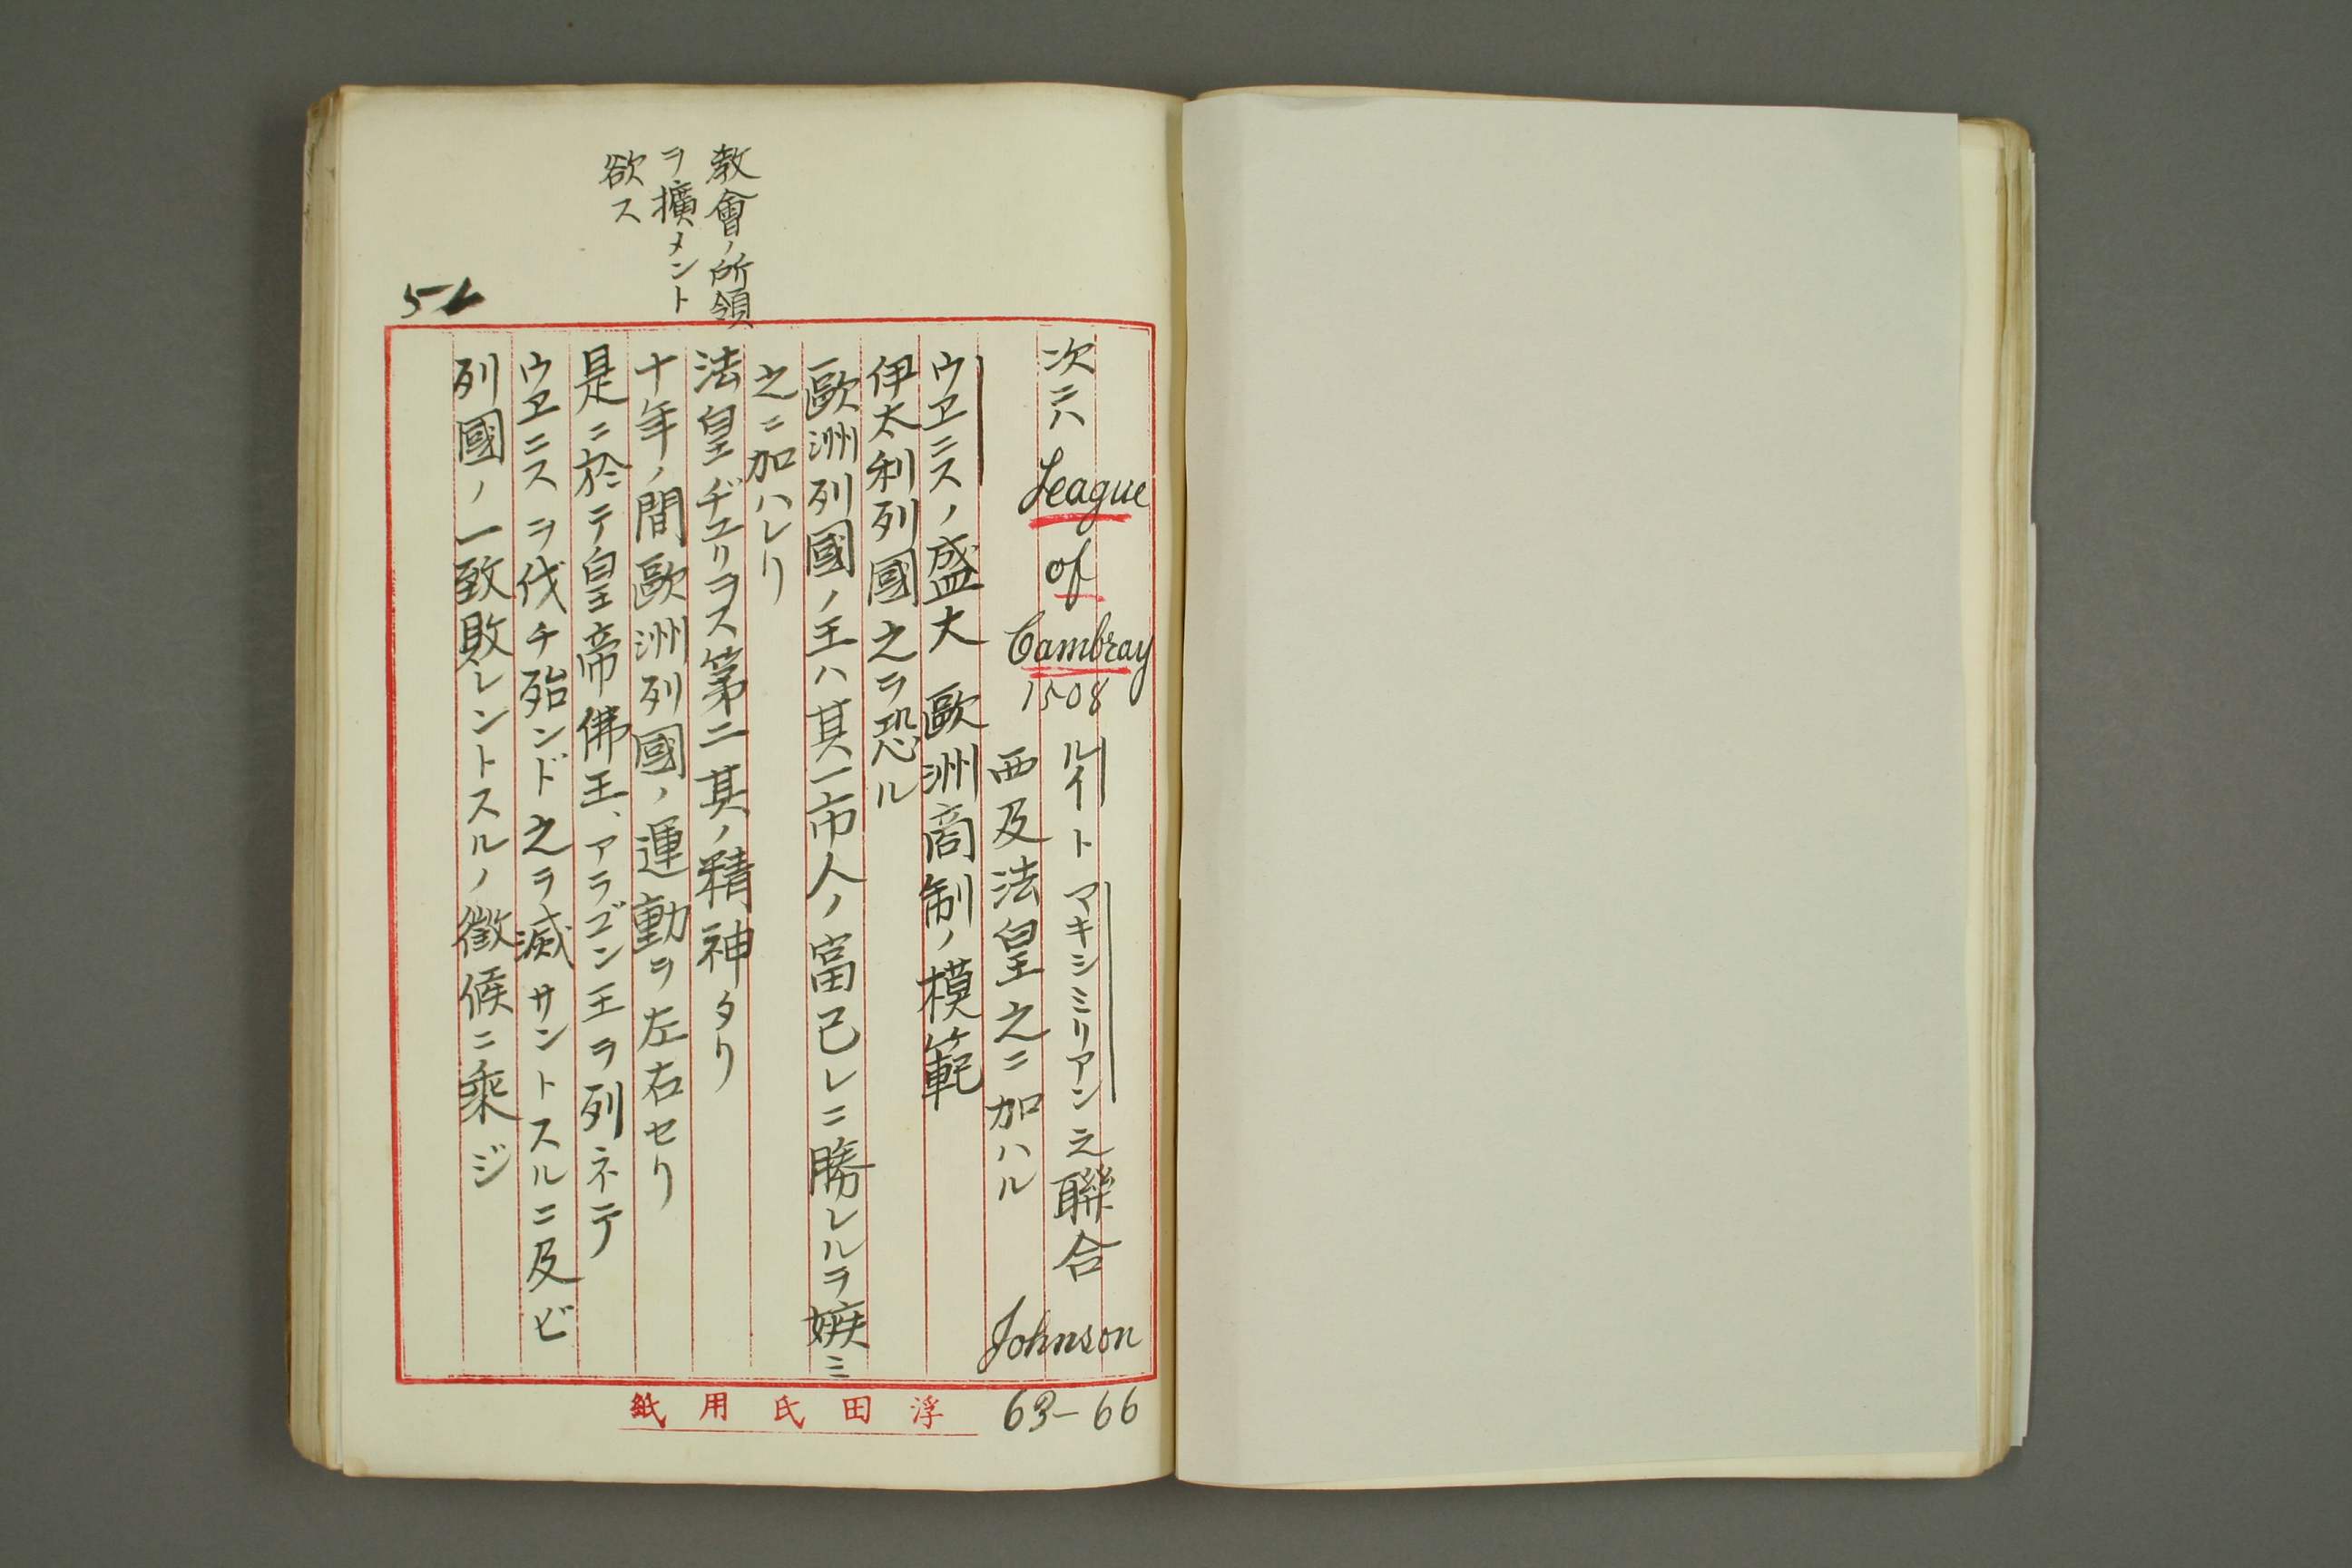 教會ノ所領
ヲ擴メント
欲ス
次ニハ League of Cambray 1508 ルイト マキシミリアン之聯合 Johnson 63-66
西及法皇之ニ加ハル
ウヱニスノ盛大 歐洲商制ノ模範
伊太利列國之ヲ恐ル
歐洲列國ノ王ハ其一市人ノ富己レニ勝レルヲ嫉ミ
之ニ加ハレリ
法皇ヂユリヲス第二其ノ精神タリ
十年ノ間歐洲列國ノ運動ヲ左右セリ
是ニ於テ皇帝佛王、アラゴン王ヲ列ネテ
ウヱニスヲ伐チ殆ンド之ヲ滅サントスルニ及ビ
列國ノ一致敗レントスルノ徵候ニ乘ジ
浮田氏用紙